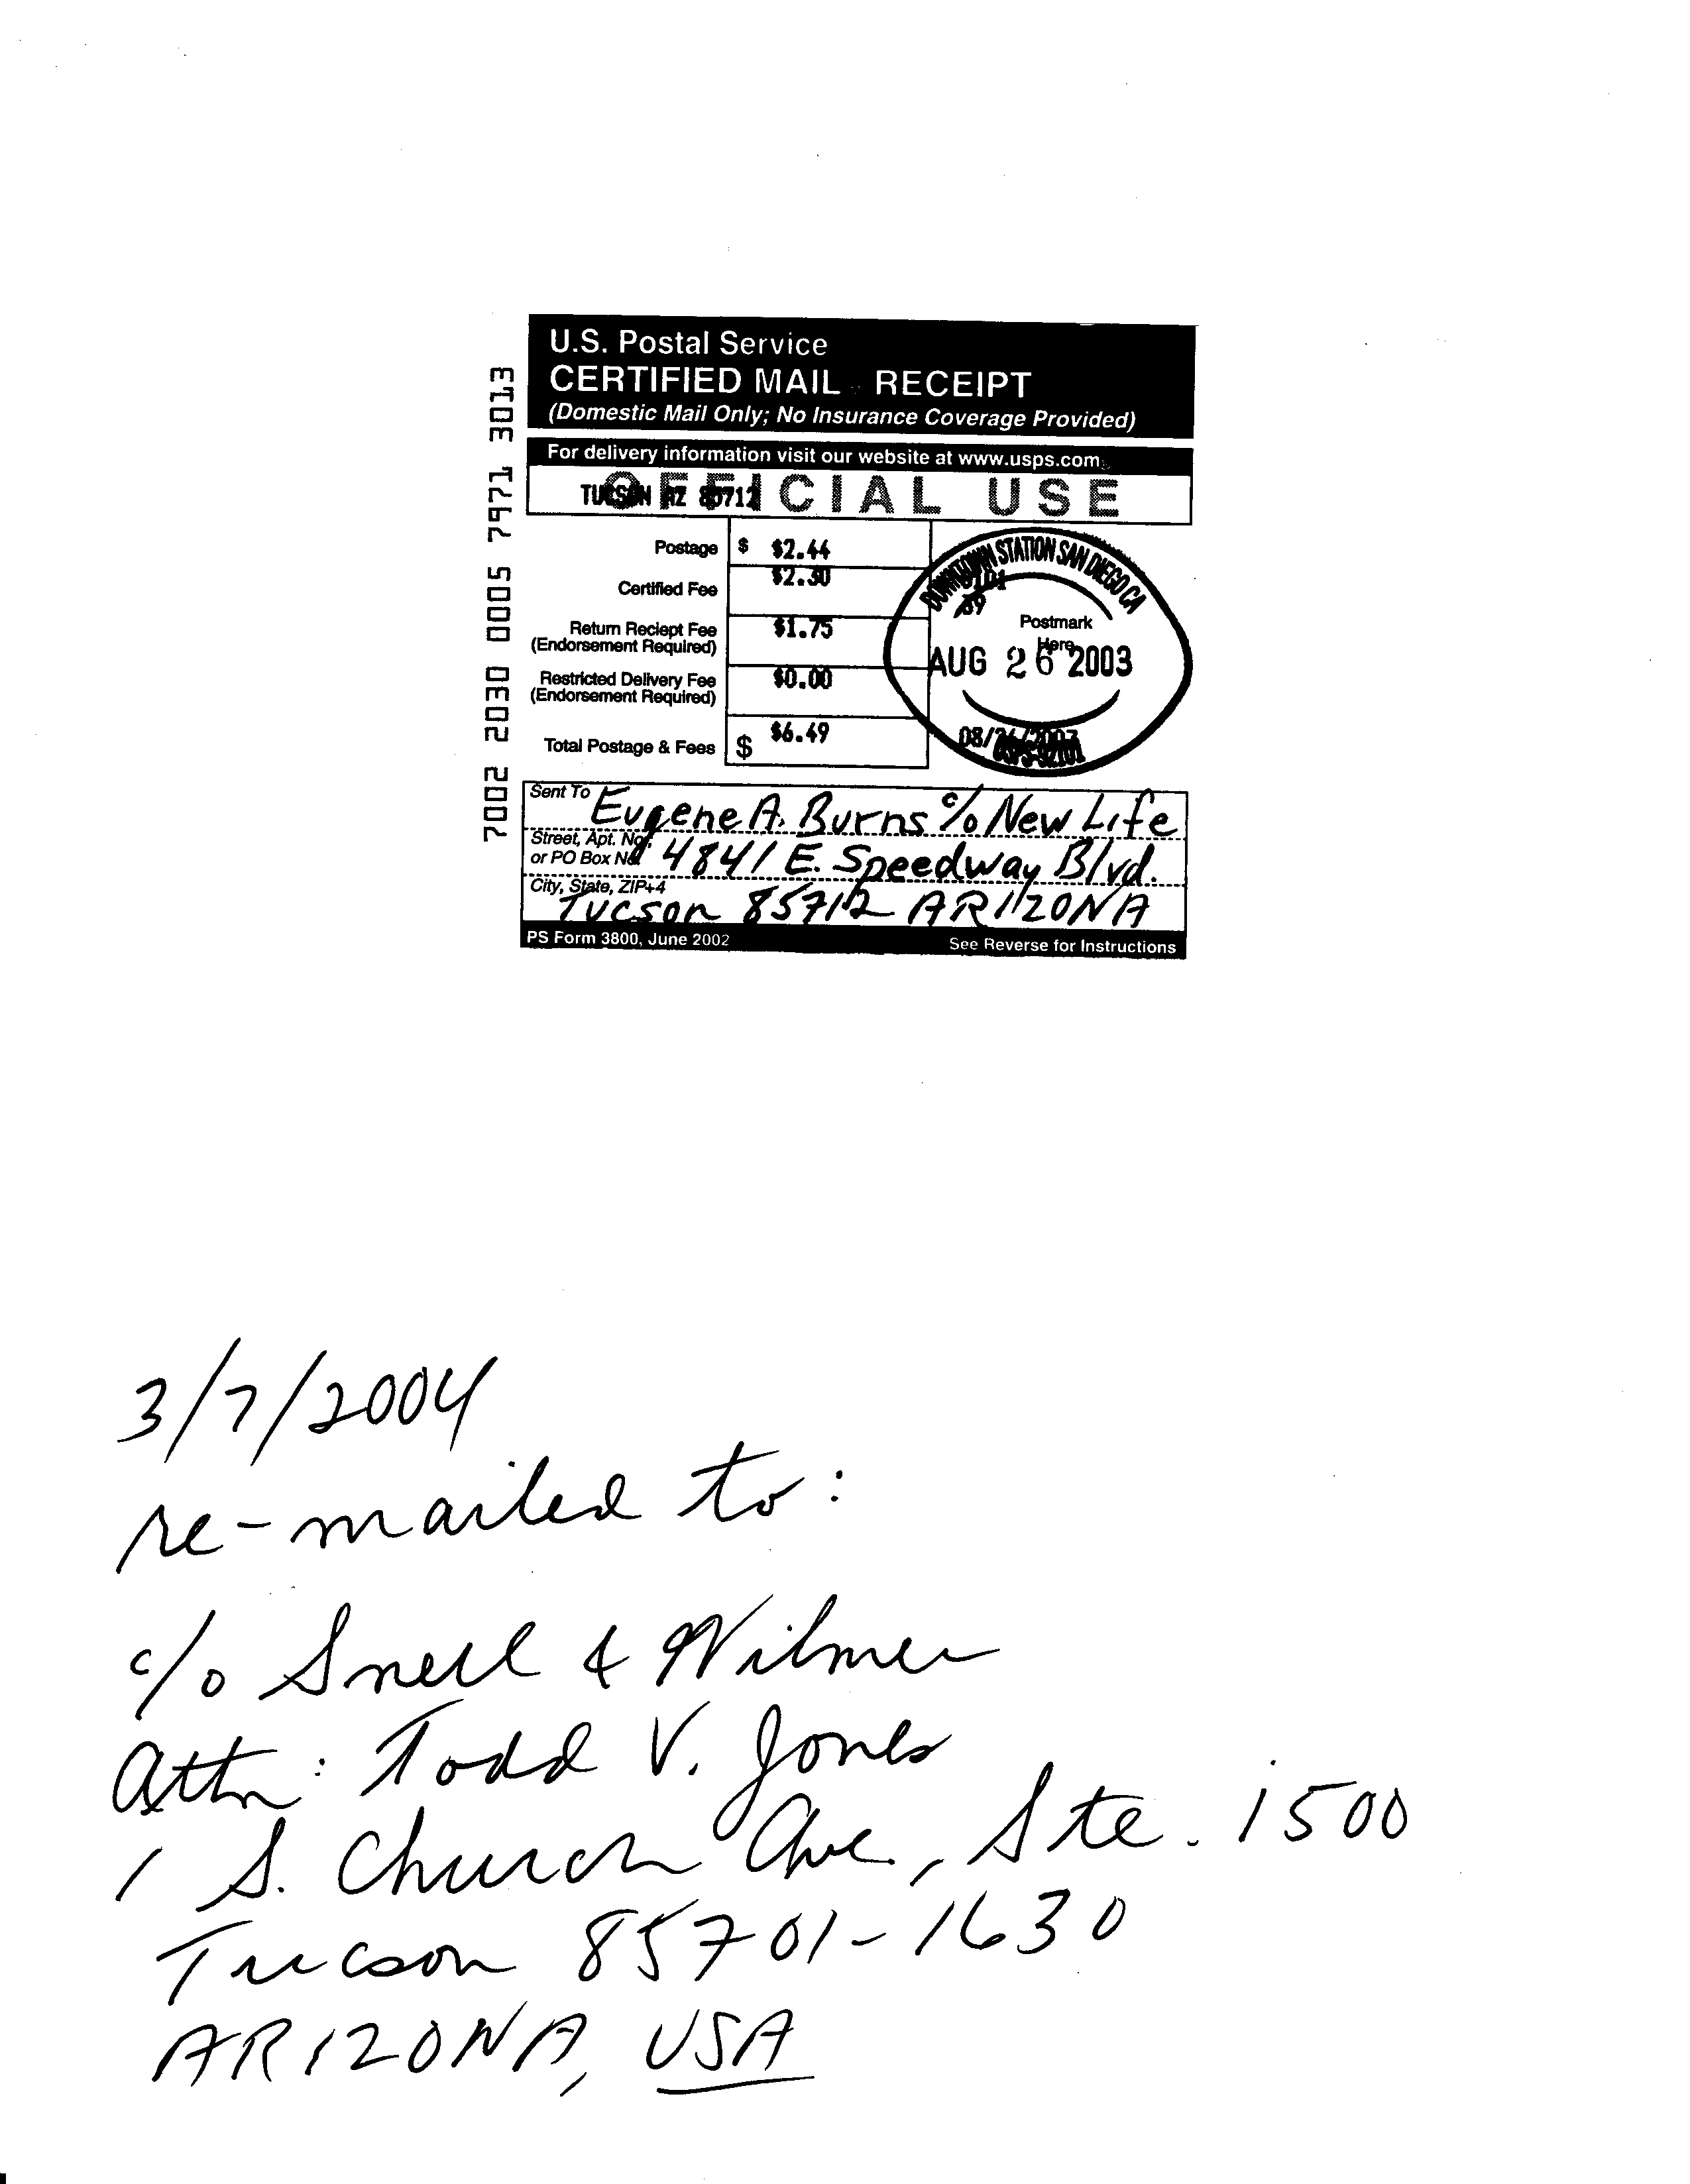 U.S. Postal Service
CERTIFIED MAIL RECEIPT
(Domestic Mail Only; No Insurance Coverage Provided)
For delivery information visit our website at www.usps.com
OFFICIAL USE
TUCSON AZ 85712
Postage $ $2.44
Certified Fee $2.30
Return Reciept Fee
(Endorsement Required) $1.75
Restricted Delivery Fee
(Endorsement Required) $0.00
Total Postage & Fees $ $6.49
DOWNTOWN STATION SAN DIEGO CA
Postmark
Here
AUG 26 2003
08/26/2003
USPS-92101
7002 2030 0005 7971 3013
Sent To Eugene A. Burns c/o New Life
Street, Apt. No.;
or PO Box No. 4841 E. Speedway Blvd.
City, State, ZIP+4
Tucson 85712 ARIZONA
PS Form 3800, June 2002 See Reverse for Instructions
3/7/2004
re-mailed to:
c/o Snell & Wilmer
Attn: Todd V. Jones
1 S. Church Ave., Ste. 1500
Tucson 85701-1630
ARIZONA, USA